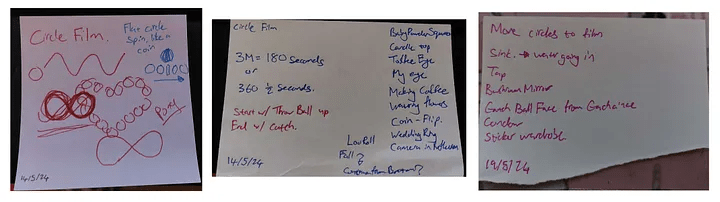 Circle Film.
Flat circle
Spin, like a
coin
Pong
14/5/24
Circle Film
3M = 180 seconds
or
360 ½ seconds.
Start w/ Throw Ball up
End w/ Catch.
14/5/24
Baby Powder Squares
Candle top
Toffee Eye
My eye
Making Coffee
Watering flowers
Coin - Flip.
Wedding Ring
Camera in Reflection
Low Ball
Fall?
Camera from Bottom?
More circles to film
Sink. → water going in
Tap
Bathroom Mirror
Gatch Ball Free from Gachance
Conveor
Sticker wardrobe.
19/5/24